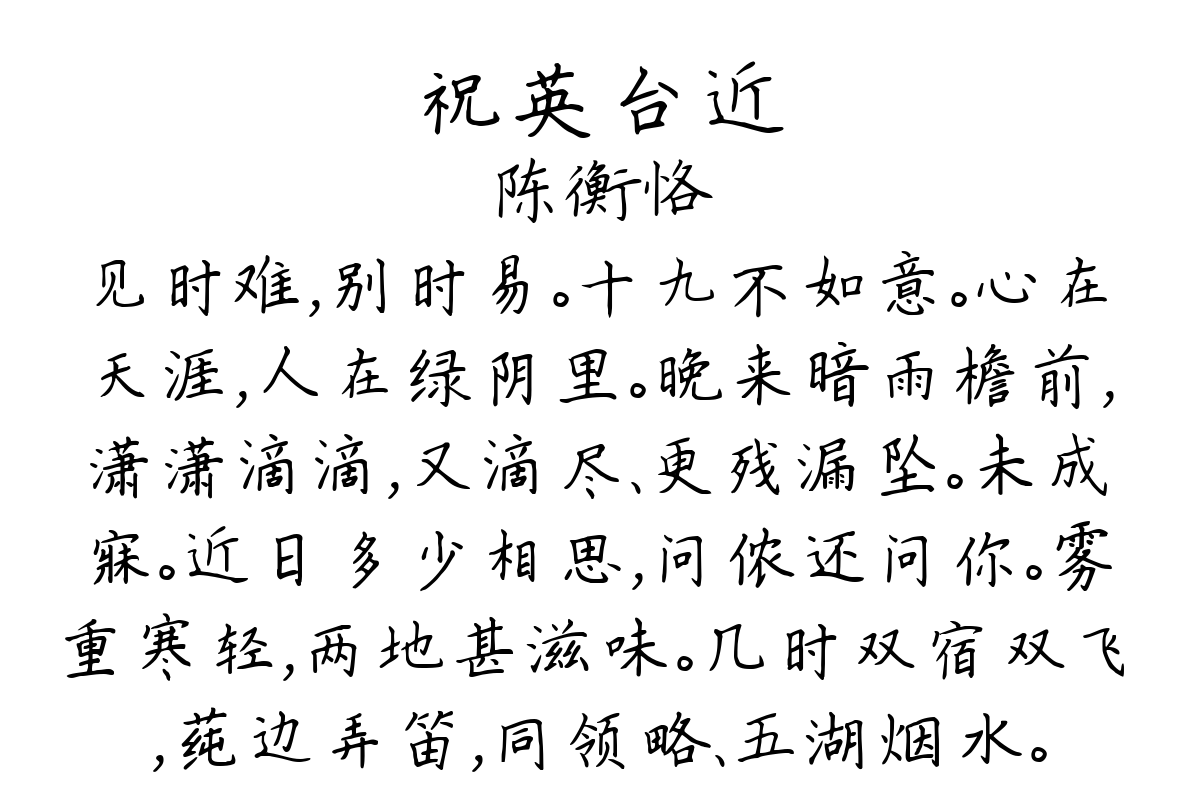 祝英台近
陈衡恪
见时难,别时易。十九不如意。心在
天涯,人在绿阴里。晚来暗雨檐前,
潇潇滴滴,又滴尽、更残漏坠。未成
寐。近日多少相思,问侬还问你。雾
重寒轻,两地甚滋味。几时双宿双飞
,莼边弄笛,同领略、五湖烟水。